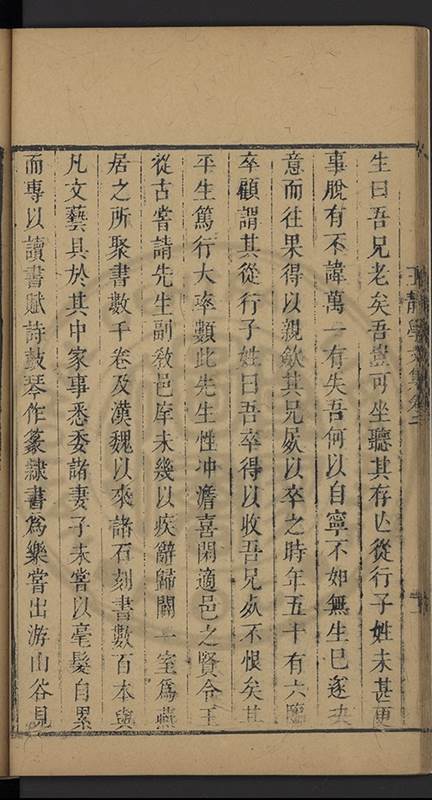 生曰吾兄老矣吾豈可坐聽其存亡從行子姓未甚更
事脫有不諱萬一有失吾何以自寧不如無生巳遂决
意而往果得以親斂其兄屍以卒之時年五十有六臨
卒顧謂其從行子姓曰吾卒得以收吾兄屍不恨矣其
平生篤行大率類此先生性冲澹喜閑適邑之賢令王
從古嘗請先生副敎邑庠未幾以疾辭歸闢一室爲燕
居之所聚書數千卷及漢魏以來諸石刻書數百本與
凡文藝具於其中家事悉委諸妻子未嘗以毫髮自累
而專以讀書賦詩鼓琴作篆隷書爲樂嘗出游山谷見